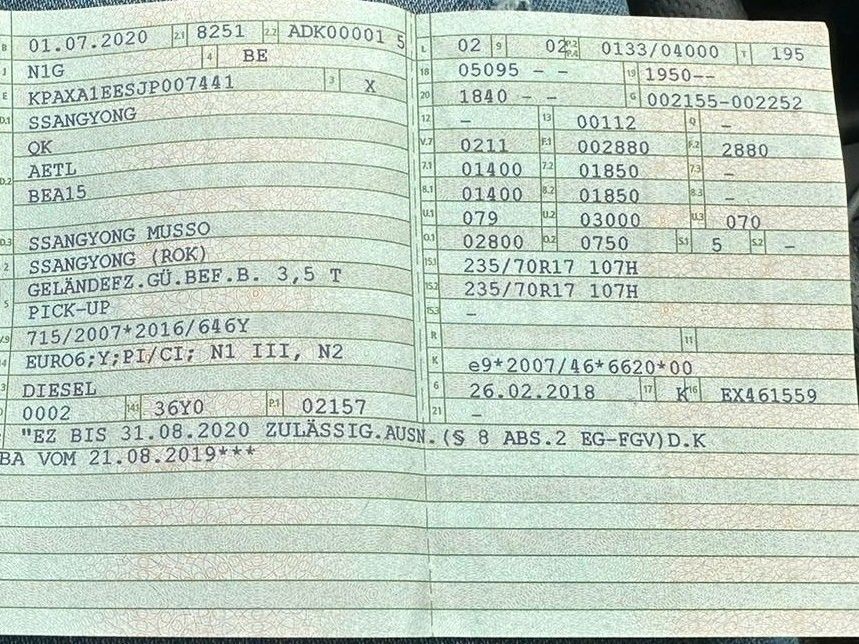 B 01.07.2020 2.1 8251 2.2 ADK00001 5
J N1G 4 BE
E KPAXA1EESJP007441 3 X
D.1 SSANGYONG
QK
D.2 AETL
BEA15
D.3 SSANGYONG MUSSO
2 SSANGYONG (ROK)
GELÄNDEFZ.GÜ.BEF.B. 3,5 T
5 PICK-UP
V.9 715/2007*2016/646Y
14 EURO6;Y;PI/CI; N1 III, N2
P.3 DIESEL
0002 14.1 36Y0 P.1 02157
L 02 9 02 P.2 P.4 0133/04000 T 195
18 05095 - - 19 1950--
20 1840 - - G 002155-002252
12 - 13 00112 Q -
V.7 0211 F.1 002880 F.2 2880
7.1 01400 7.2 01850 7.3 -
8.1 01400 8.2 01850 8.3 -
U.1 079 U.2 03000 U.3 070
O.1 02800 O.2 0750 S.1 5 S.2 -
15.1 235/70R17 107H
15.2 235/70R17 107H
15.3 -
R 11
K e9*2007/46*6620*00
6 26.02.2018 17 K 16 EX461559
21 -
"EZ BIS 31.08.2020 ZULÄSSIG.AUSN.(§ 8 ABS.2 EG-FGV)D.K
BA VOM 21.08.2019***